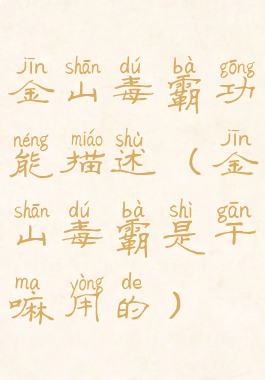 jīn shān dú bà gōng
金山毒霸功
néng miáo shù jīn
能描述（金
shān dú bà shì gān
山毒霸是干
ma yòng de
嘛用的）